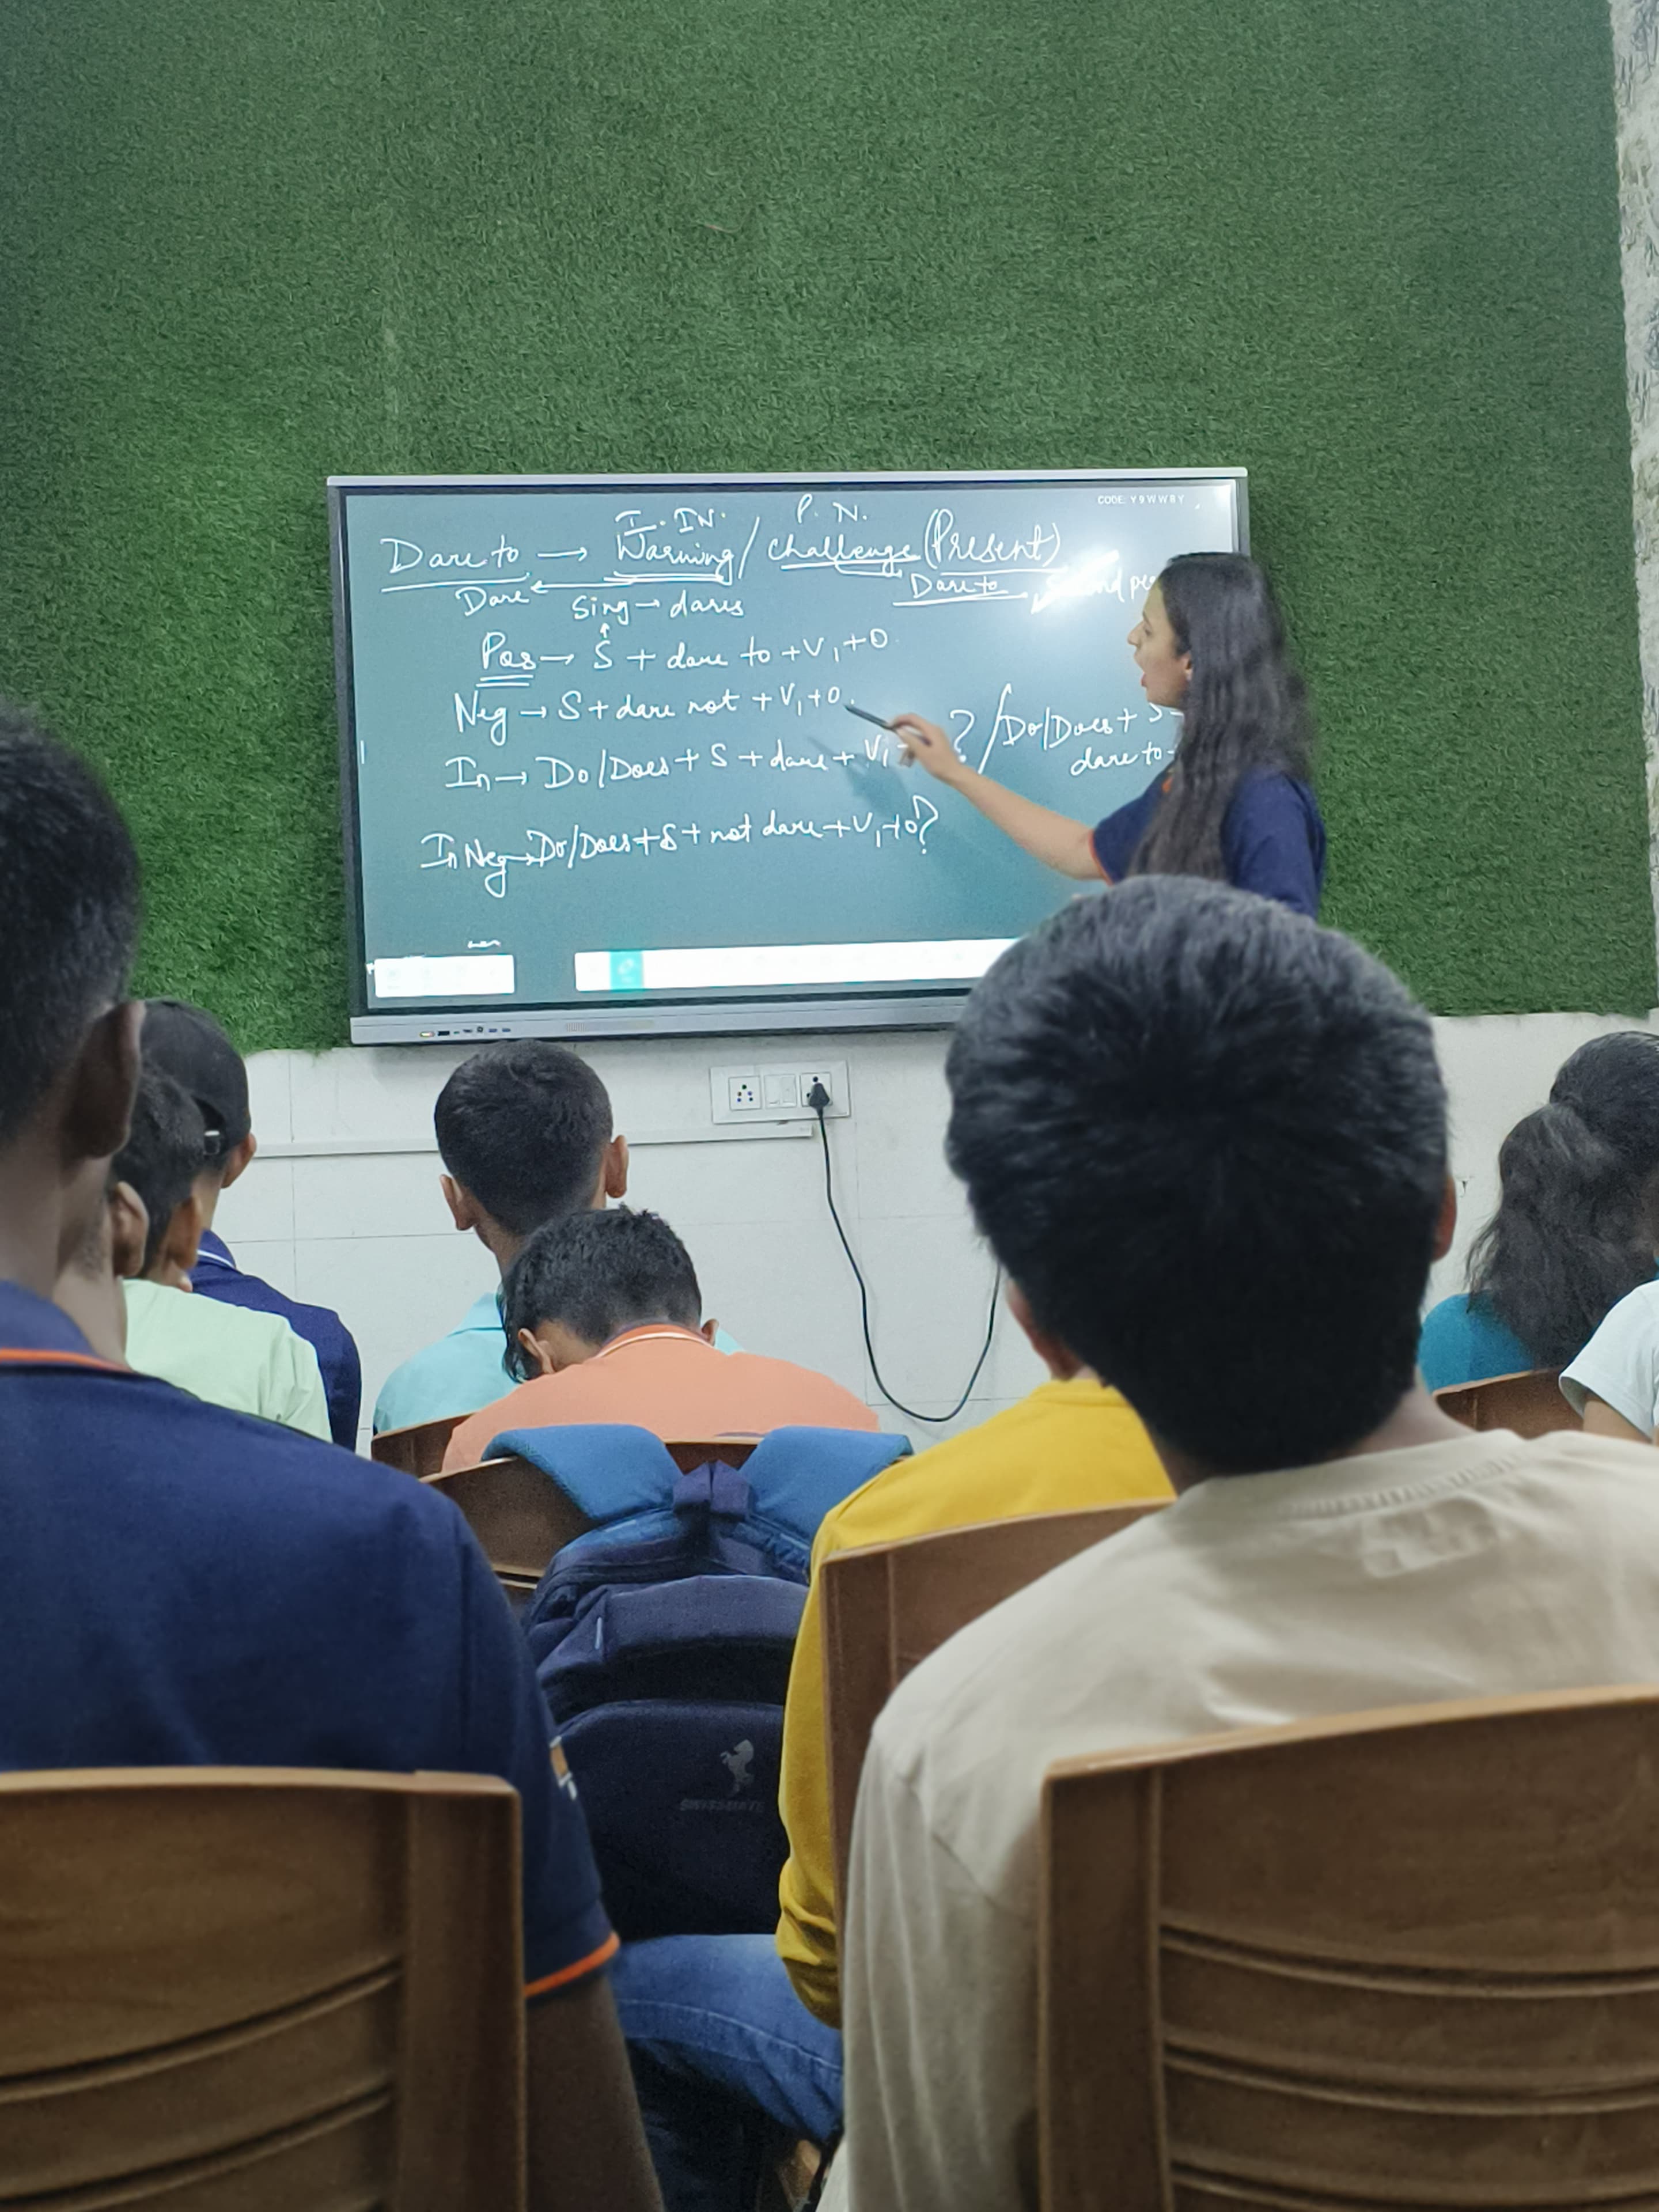 CODE: Y9WWBY
I. IN. P. N.
Dare to → Warning / Challenge (Present)
Dare ← Dare to
Sing → dares
Pos → S + dare to + V1 + O
Neg → S + dare not + V1 + O.
In → Do/Does + S + dare + V1 ? / Do/Does + S
dare to
In Neg → Do/Does + S + not dare + V1 + O?